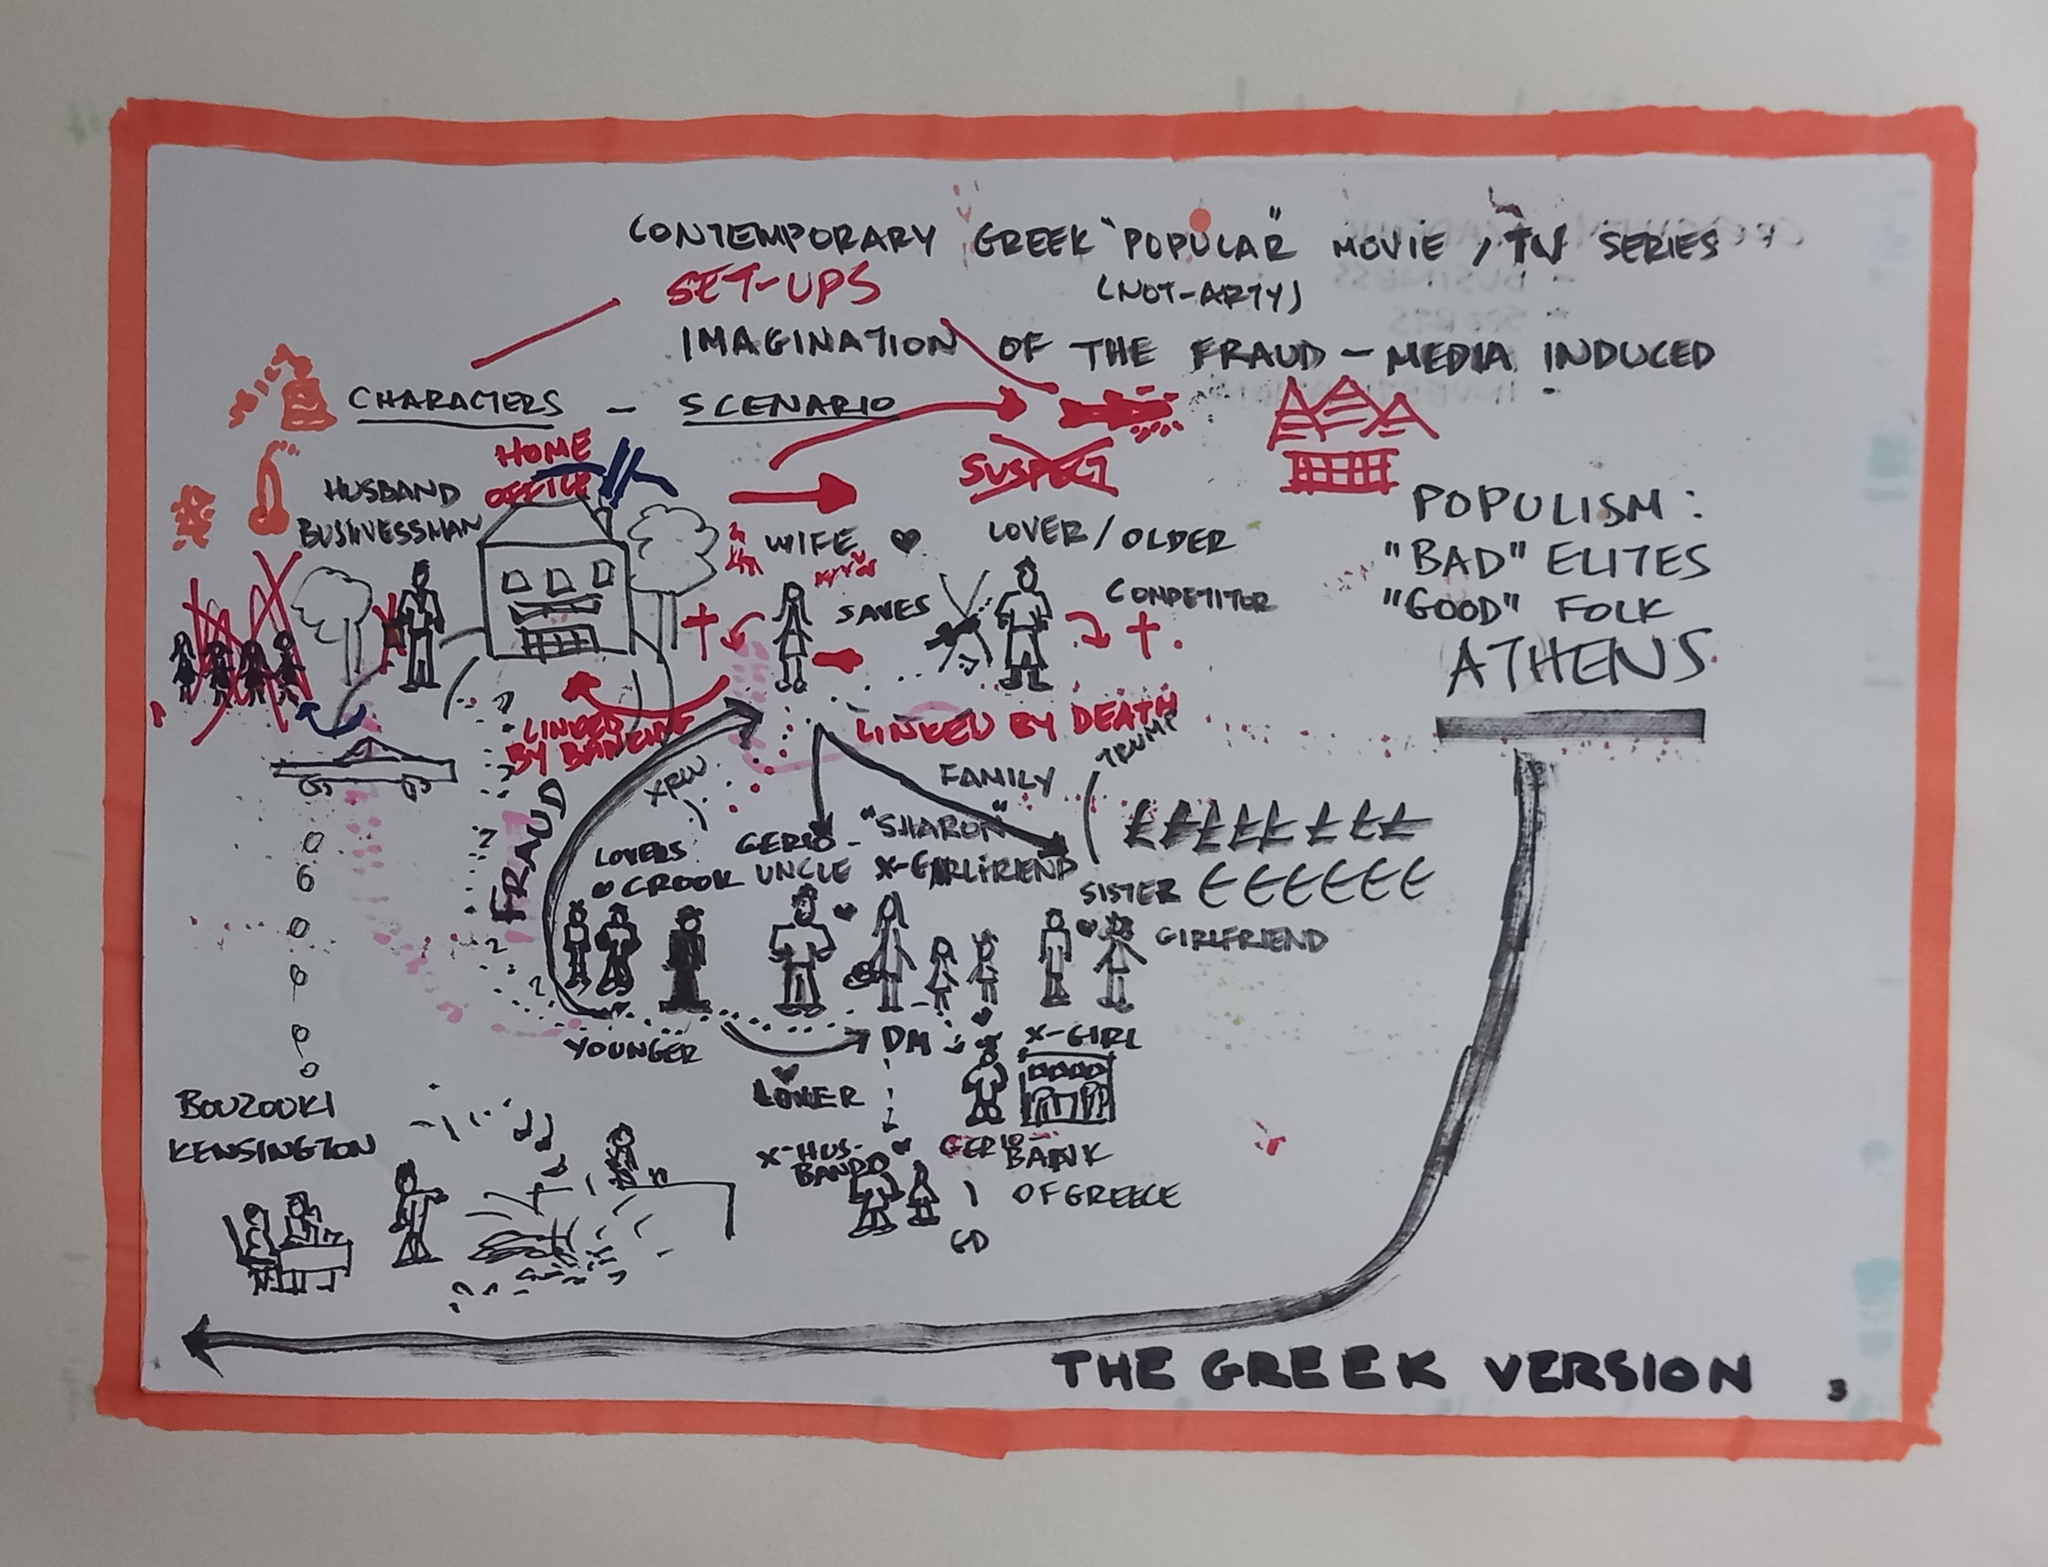 CONTEMPORARY GREEK "POPULAR" MOVIE / TV SERIES
SET-UPS (NOT-ARTY)
IMAGINATION OF THE FRAUD - MEDIA INDUCED
CHARACTERS - SCENARIO
HOME
OFFICE
SUSPECT
HUSBAND
BUSINESSMAN
WIFE
LOVER/OLDER
COMPETITOR
SAVES
POPULISM:
"BAD" ELITES
"GOOD" FOLK
ATHENS
LINKED
BY
LINKED BY DEATH
TRUMP
FAMILY
FRAUD
LOVERS
CROOK
UNCLE
"SHARON"
X-GIRLFRIEND
SISTER € € € € € €
GIRLFRIEND
YOUNGER
DM
X-GIRL
LOVER
BOUZOUKI
KENSINGTON
X-HUS-
BAND
BANK
OF GREECE
GD
THE GREEK VERSION
3